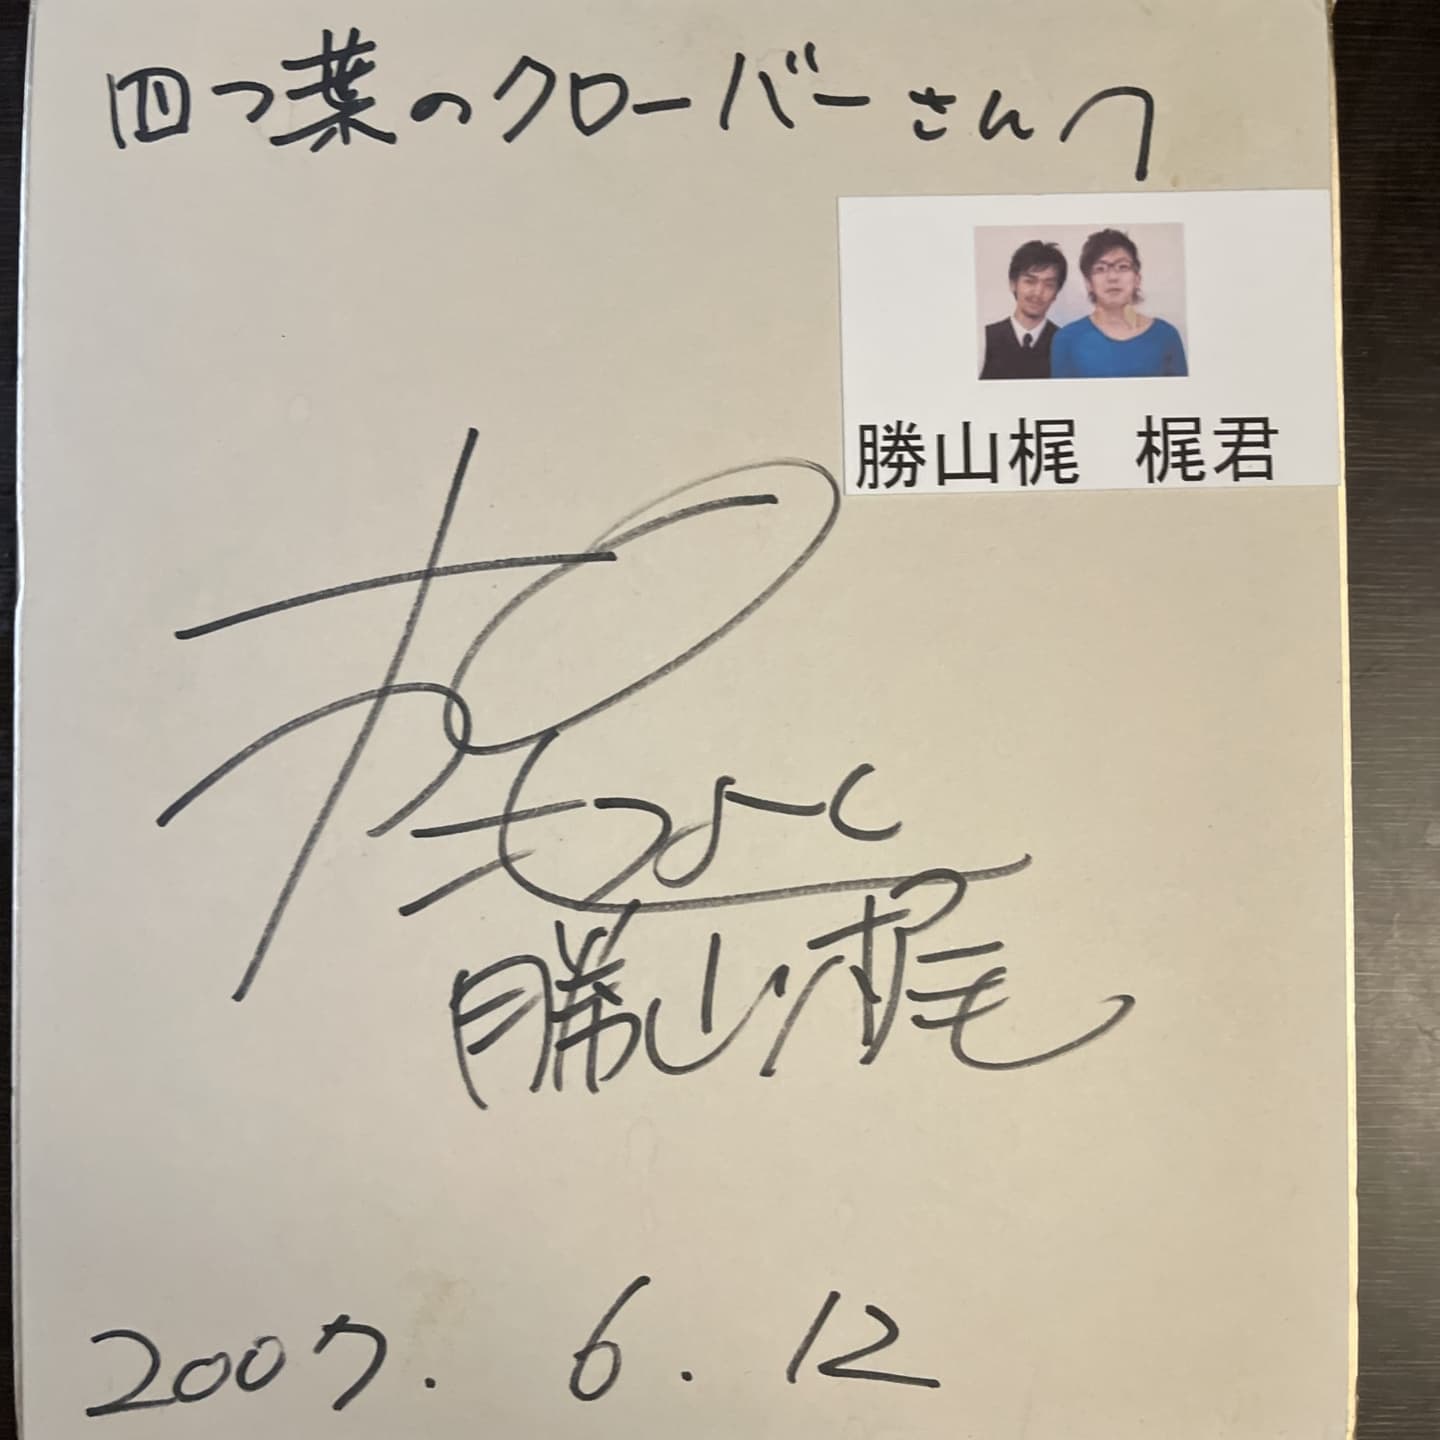 四つ葉のクローバーさんへ
勝山梶 梶君
梶
勝山梶
2007. 6. 12